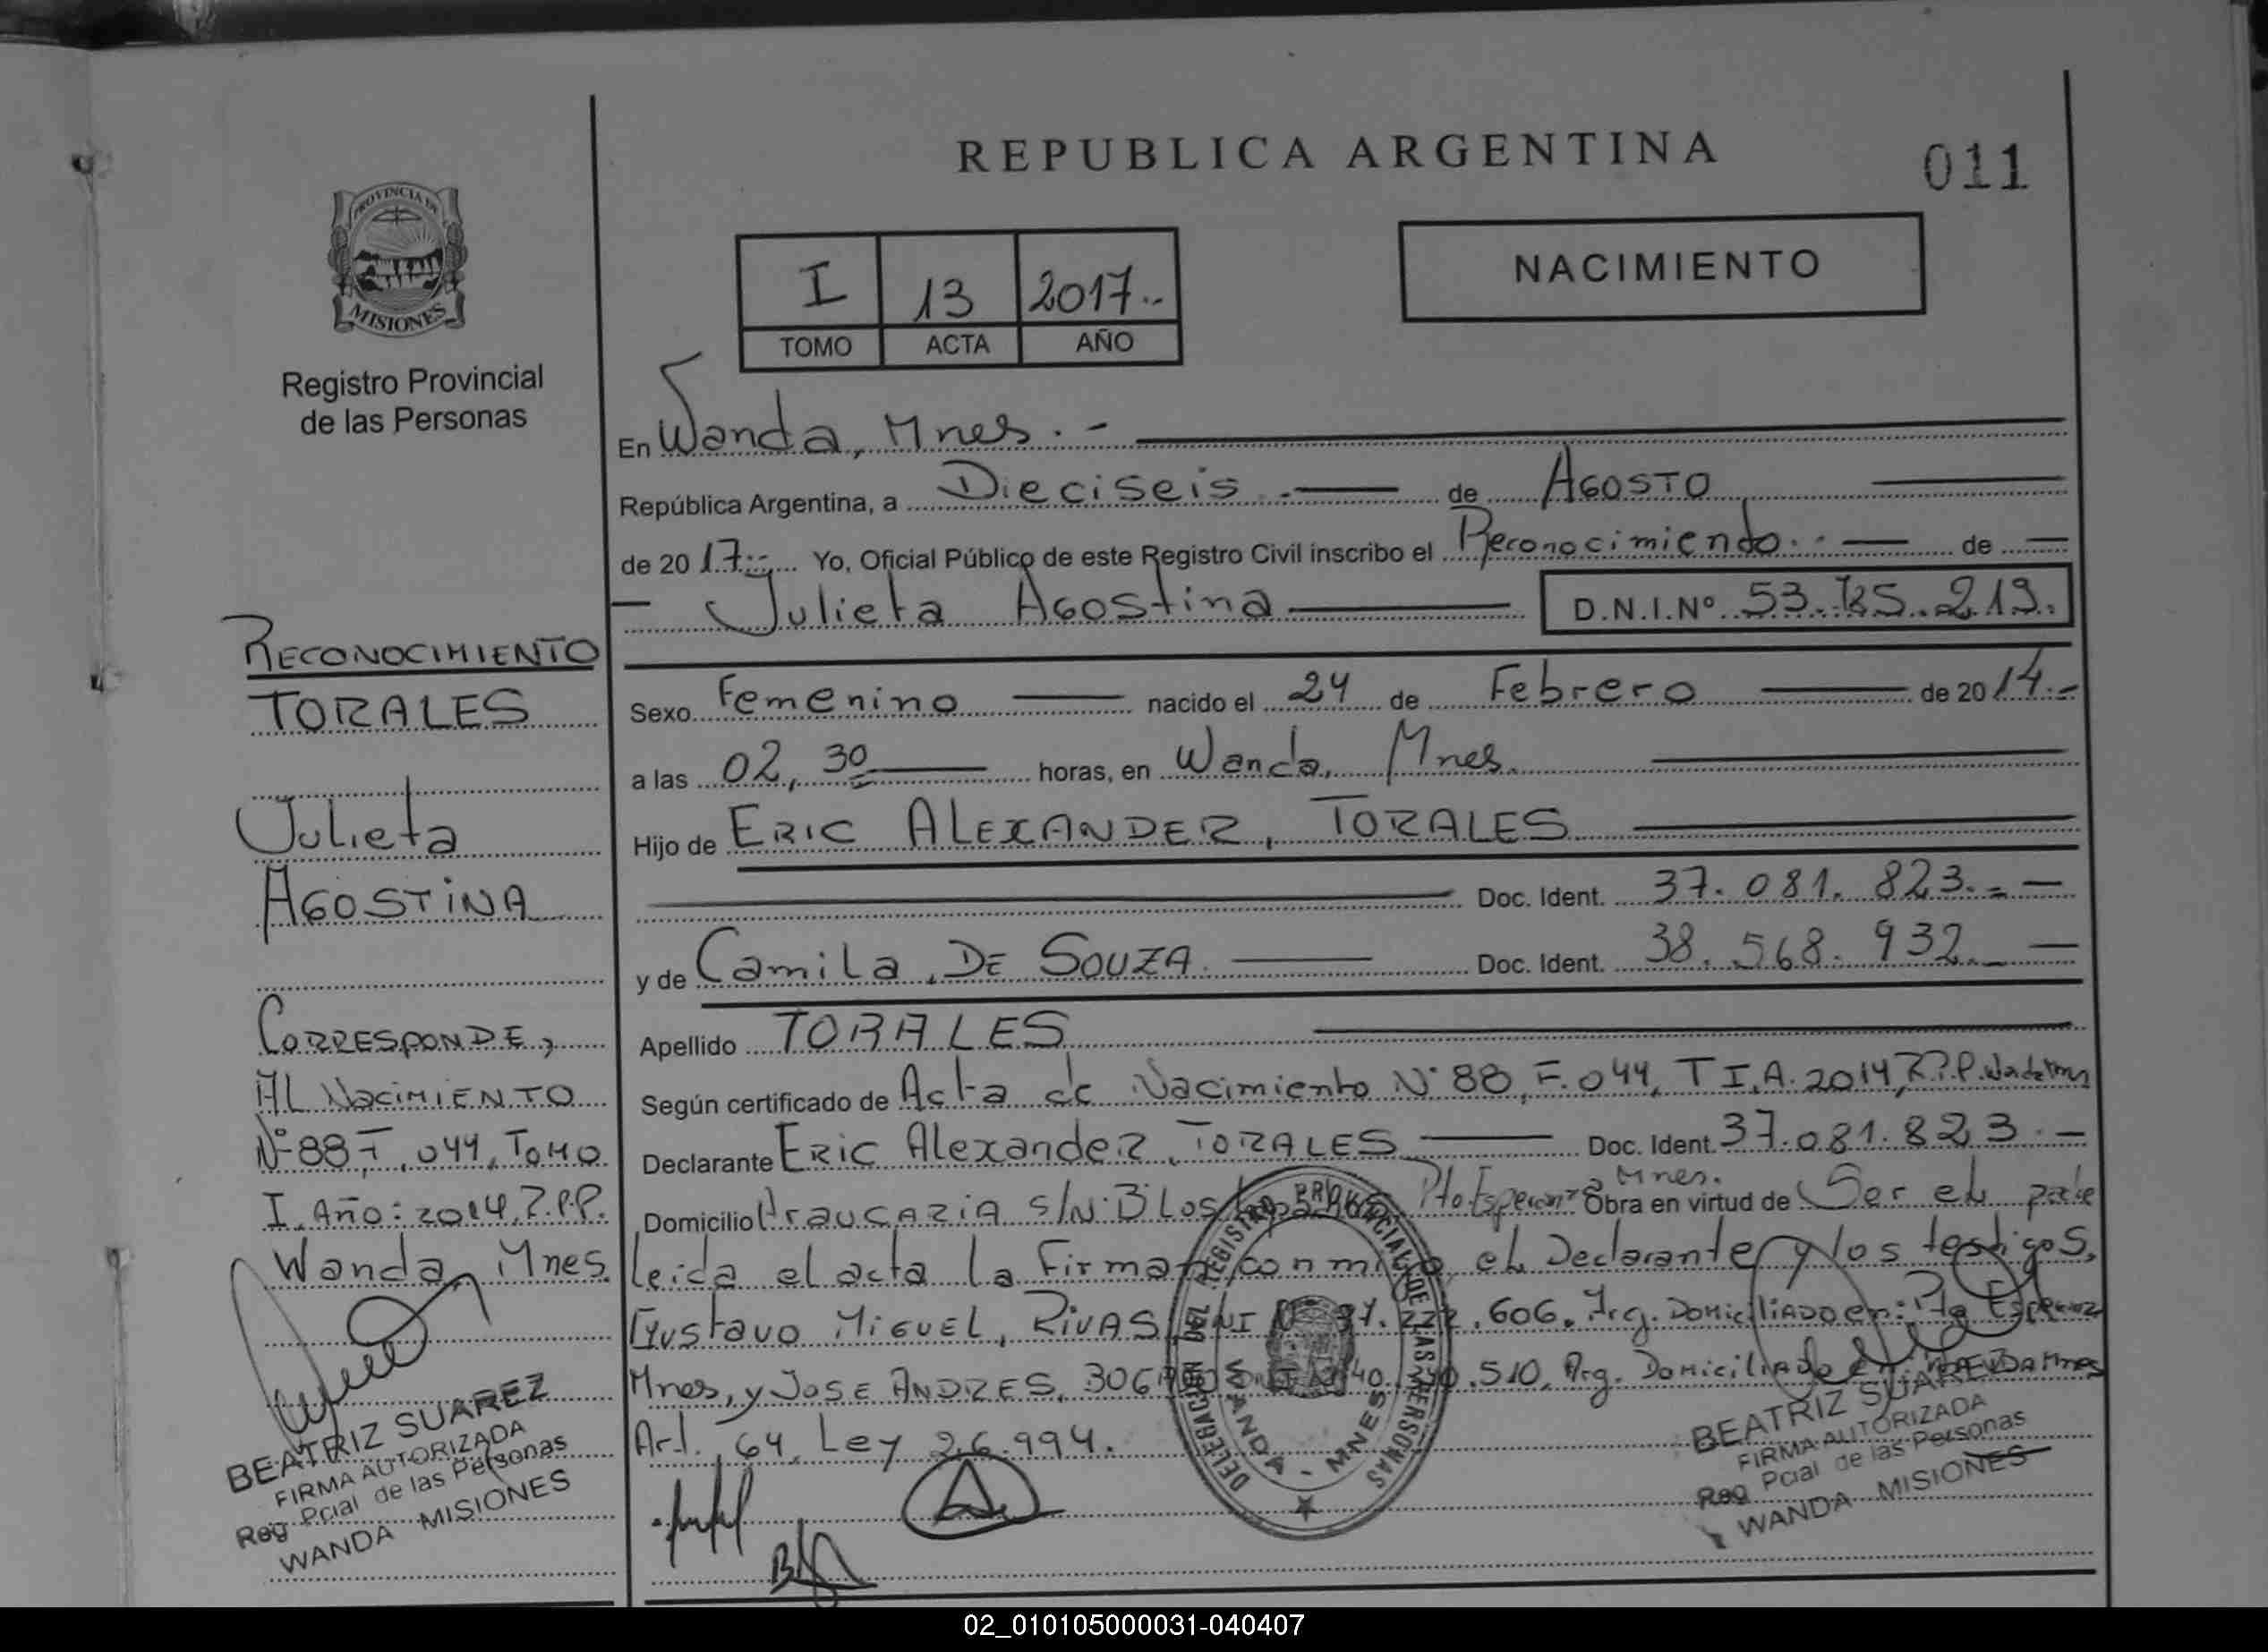 REPUBLICA ARGENTINA
011
PROVINCIA DE
MISIONES
Registro Provincial
de las Personas
I 13 2017..
TOMO ACTA AÑO
NACIMIENTO
En Wanda, Mnes. -
República Argentina, a Dieciseis .- de AGOSTO
de 2017.- Yo, Oficial Público de este Registro Civil inscribo el Reconocimiendo.. de
Julieta AGOStina
D.N.I.Nº 53. 219.
Sexo Femenino nacido el 24 de Febrero de 2014.-
a las 02, 30 horas, en Wanda, Mnes.
Hijo de ERIC ALEXANDER, TORALES
Doc. Ident. 37. 081. 823.-
y de Camila, DE SOUZA. Doc. Ident. 38. 568. 932.
Apellido TORALES
Según certificado de Acta de Nacimiento Nº 88, F. 044, T I, A. 2014,
Declarante ERIC AlexandeR, TORALES Doc. Ident. 37.081.823.-
Domicilio ARAUCARIA S/N. B Los Pto Esperanza Mnes. Obra en virtud de Ser el padre
leida el acta la Firman con migo el Declarante y los testigos,
Gustavo MIGUEL, RIVAS .606. Arg. DOMICILIADO en: Pto Esperanza
Mnes, y JOSE ANDRES, .510, Arg. DOMICILIADO
Art. 64 Ley 26.994.
RECONOCIMIENTO
TORALES
Julieta
AGOSTINA
CORRESPONDE,
AL NaCIMIENTO
Nº 88 F, 044, TOMO
I. Año: 2014. R.P.P.
Wanda, Mnes.
BEATRIZ SUAREZ
FIRMA AUTORIZADA
Reg Pcial de las Personas
WANDA MISIONES
DELEGACION DEL REGISTRO PROVINCIAL DE LAS PERSONAS
WANDA - MNES
BEATRIZ SUAREZ
FIRMA AUTORIZADA
Reg Pcial de las Personas
WANDA MISIONES
02_010105000031-040407